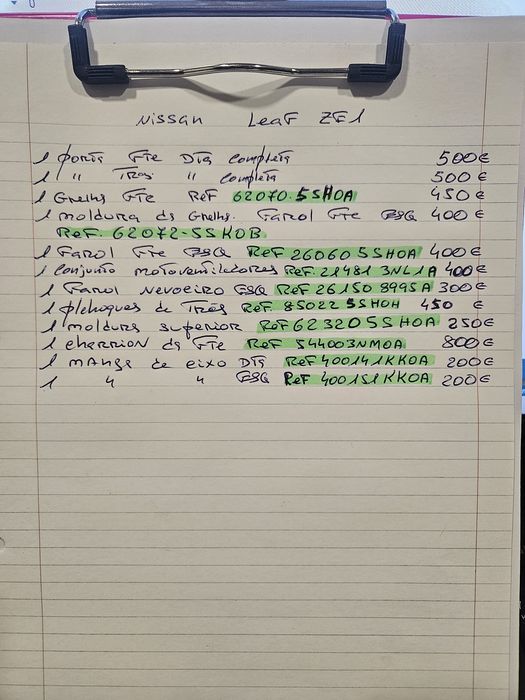 Nissan Leaf ZE1
1 porta Fte Dta completa 500€
1 " Tras " completa 500€
1 Grelha Fte Ref 62070.5SHOA 450€
1 moldura da Grelha. Farol Fte ESQ 400€
Ref. 62072-5SKOB
1 Farol Fte ESQ Ref 26060 5SHOA 400€
1 conjunto motoventiladores Ref. 21481 3NL1A 400€
1 Farol Nevoeiro ESQ Ref 26150 8995A 300€
1 pachoques de Trás Ref. 85022 5SHOH 450 €
1 moldura superior Ref 623205SHOA 250€
1 charrion da Fte Ref 544003NMOA 800€
1 manga de eixo Dta Ref 400141KKOA 200€
1 " " ESQ Ref 400151KKOA 200€